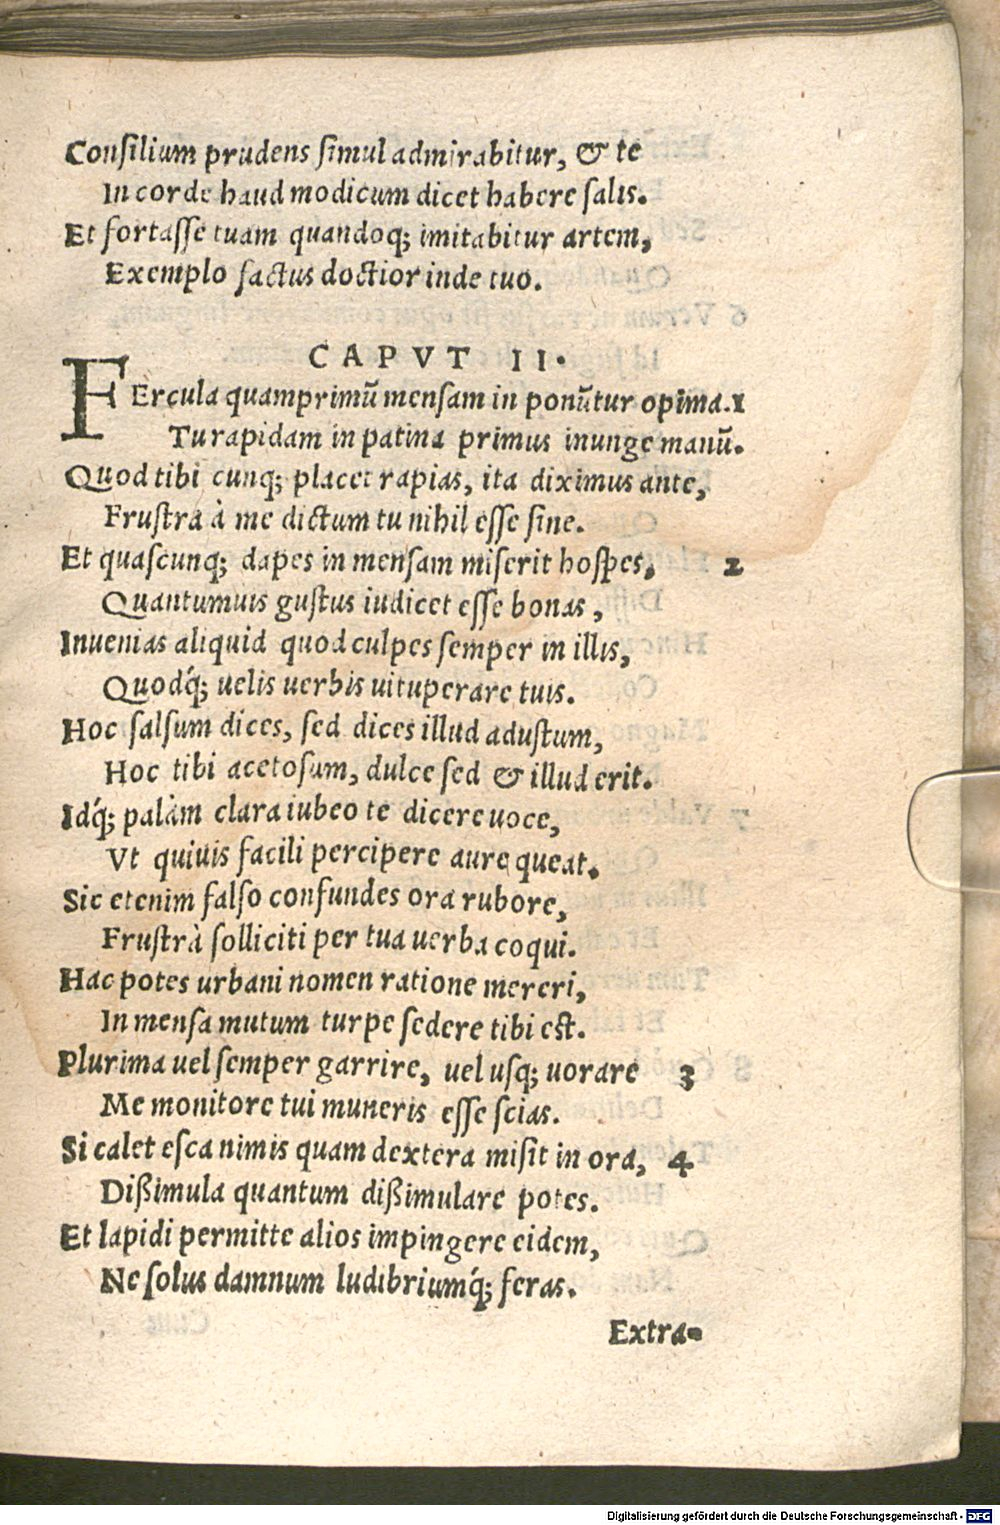 Conſilium prudens ſimul admirabitur, & te
In corde haud modicum dicet habere ſalis.
Et fortaſſe tuam quandoq; imitabitur artem,
Exemplo factus doctior inde tuo.
CAPVT II.
FErcula quamprimū menſam in ponūtur opima. 1
Tu rapidam in patina primus inunge manū.
Quod tibi cunq; placet rapias, ita diximus ante,
Fruſtra à me dictum tu nihil eſſe ſine.
Et quaſcunq; dapes in menſam miſerit hoſpes, 2
Quantumuis guſtus iudicet eſſe bonas,
Inuenias aliquid quod culpes ſemper in illis,
Quodq́; uelis uerbis uituperare tuis.
Hoc ſalſum dices, ſed dices illud aduſtum,
Hoc tibi acetoſum, dulce ſed & illud erit.
Idq́; palàm clara iubeo te dicere uoce,
Vt quiuis facili percipere aure queat.
Sic etenim falſo confundes ora rubore,
Fruſtrà ſolliciti per tua uerba coqui.
Hac potes urbani nomen ratione mereri,
In menſa mutum turpe ſedere tibi eſt.
Plurima uel ſemper garrire, uel uſq; uorare 3
Me monitore tui muneris eſſe ſcias.
Si calet eſca nimis quam dextera miſit in ora, 4
Dißimula quantum dißimulare potes.
Et lapidi permitte alios impingere eidem,
Ne ſolus damnum ludibriumq́; feras.
Extra-
Digitalisierung gefördert durch die Deutsche Forschungsgemeinschaft - DFG